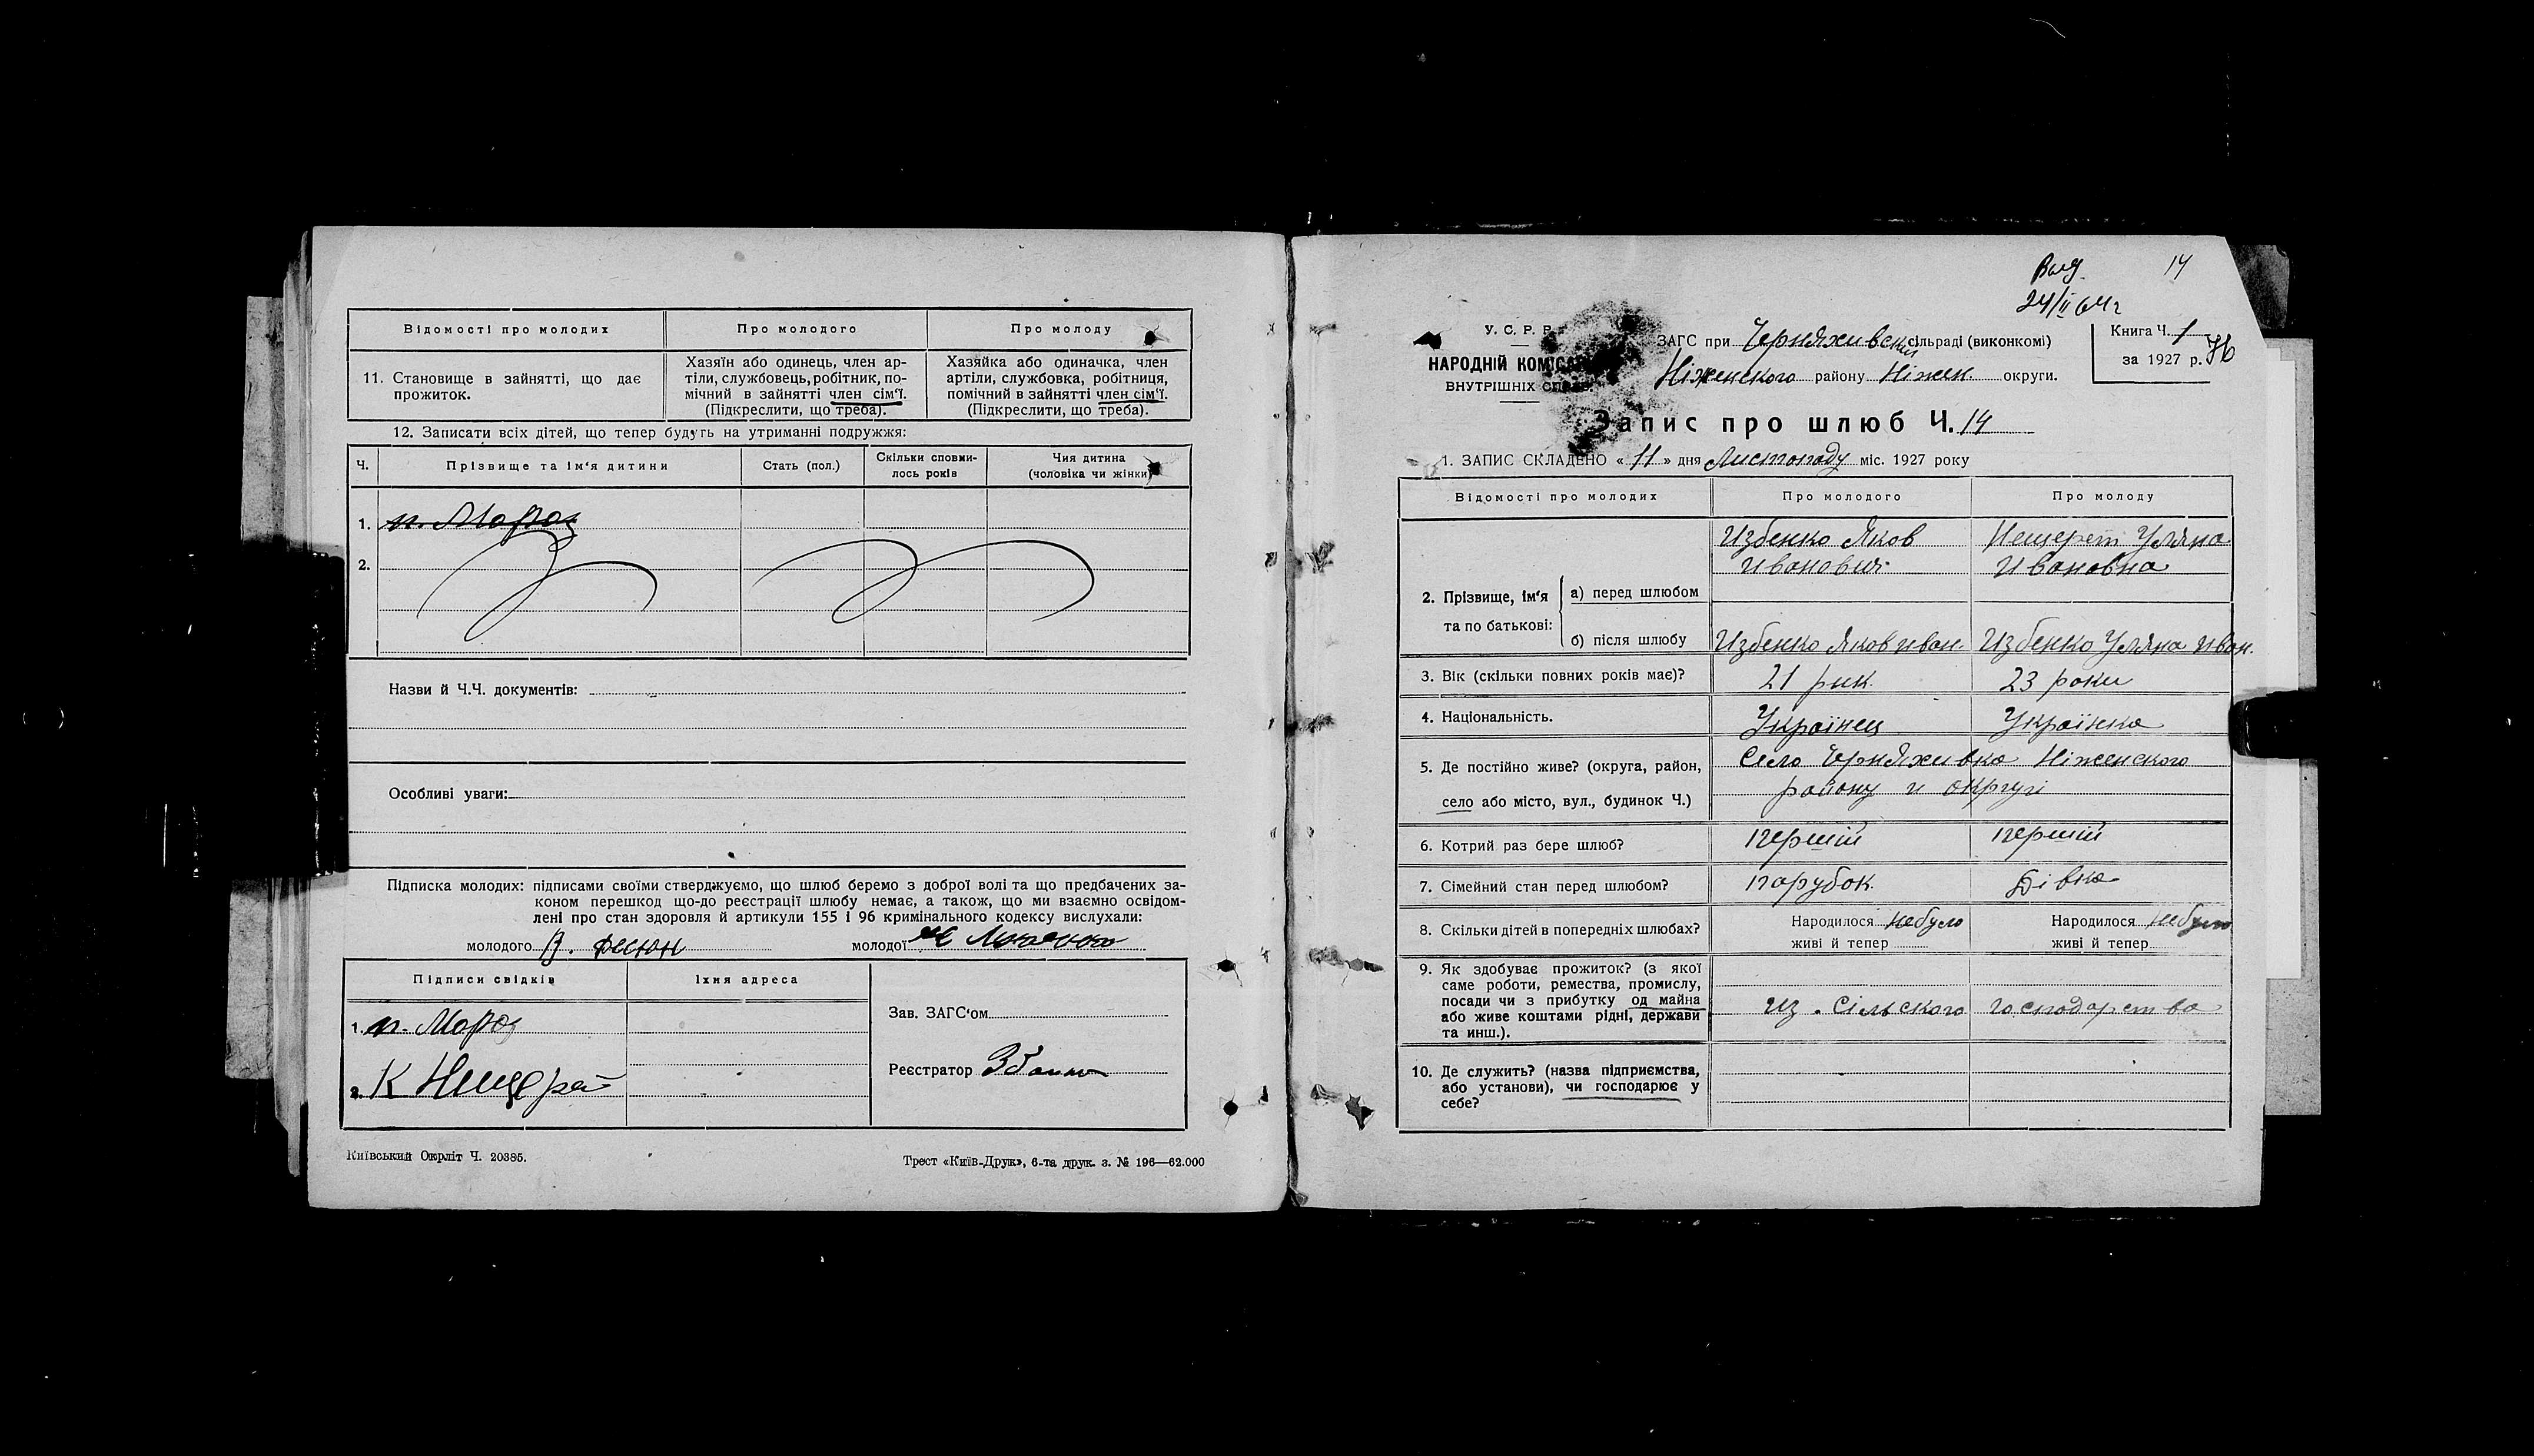 Відомості про молодих
Про молодого
Про молоду
11. Становище в зайнятті, що дає
прожиток.
Хазяїн або одинець, член ар-
тіли, службовець, робітник, по-
мічний в зайнятті член сім'ї.
(Підкреслити, що треба).
Хазяйка або одиначка, член
артіли, службовка, робітниця,
помічний в зайнятті член сім'ї.
(Підкреслити, що треба).
12. Записати всіх дітей, що тепер будуть на утриманні подружжя:
Ч.
Прізвище та ім'я дитини
Стать (пол.)
Скільки сповни-
лось років
Чия дитина
(чоловіка чи жінки)
1. п. Мороз
2.
Назви й Ч.Ч. документів:
Особливі уваги:
Підписка молодих: підписами своїми стверджуємо, що шлюб беремо з доброї волі та що предбачених за-
коном перешкод що-до реєстрації шлюбу немає, а також, що ми взаємно освідом-
лені про стан здоровля й артикули 155 і 96 кримінального кодексу вислухали:
молодого
молодої
Підписи свідків
Їхня адреса
1. п. Мороз
2. К
Зав. ЗАГС'ом
Реєстратор
Київський Окрліт Ч. 20385.
Трест «Київ-Друк», 6-та друк. з. № 196—62.000
14
24/II 64 г
У. С. Р. Р.
НАРОДНІЙ КОМІСАР
ВНУТРІШНІХ СПРАВ.
ЗАГС при Черняхивский сільраді (виконкомі)
Ніженского району Ніжен. округи.
Книга Ч. 1
за 1927 р.
Запис про шлюб Ч. 14
1. ЗАПИС СКЛАДЕНО « 11 » дня Листопаду міс. 1927 року
Відомості про молодих
Про молодого
Про молоду
2. Прізвище, ім'я
та по батькові:
а) перед шлюбом
Избенко Яков
Иванович
Нещерет Уляна
Ивановна
б) після шлюбу
Избенко Яков Иван.
Избенко Уляна Иван.
3. Вік (скільки повних років має)?
21 рик.
23 роки
4. Національність.
Українец
Українка
5. Де постійно живе? (округа, район,
село або місто, вул., будинок Ч.)
Село Черняхивка Ніженского
району и округі
6. Котрий раз бере шлюб?
першій
першій
7. Сімейний стан перед шлюбом?
парубок.
Дівка
8. Скільки дітей в попередніх шлюбах?
Народилося небуло
живі й тепер
Народилося небуло
живі й тепер
9. Як здобуває прожиток? (з якої
саме роботи, ремества, промислу,
посади чи з прибутку од майна
або живе коштами рідні, держави
та инш.).
из. Сільского господарства
10. Де служить? (назва підприємства,
або установи), чи господарює у
себе?